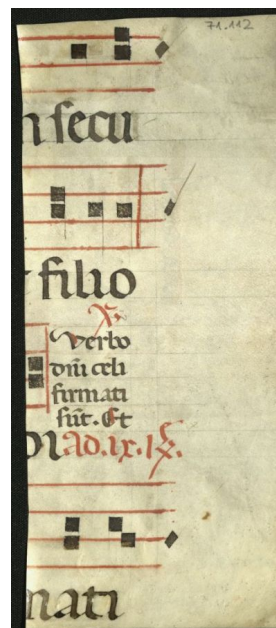 71.112
n secu
filio
℣.
Verbo
dñi celi
firmati
sūt. Et
ad.ix.
mati